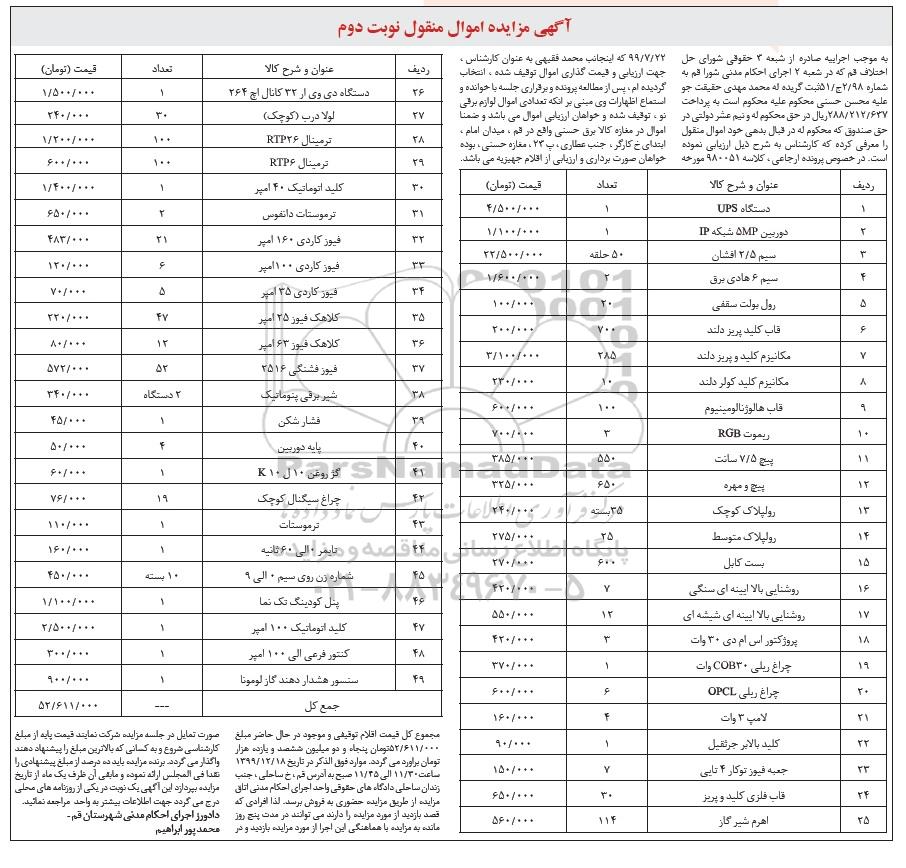 آگهی مزایده اموال منقول نوبت دوم
به موجب اجراییه صادره از شعبه ۳ حقوقی شورای حل
اختلاف قم که در شعبه ۲ اجرای احکام مدنی شورا قم به
شماره ۲/۹۸ج/۵۱ثبت گریده له محمد مهدی حقیقت جو
علیه محسن حسنی محکوم علیه محکوم است به پرداخت
۲۸۸/۲۱۲/۶۳۷ریال در حق محکوم له و نیم عشر دولتی در
حق صندوق که محکوم له در قبال بدهی خود اموال منقول
را معرفی کرده که کارشناس به شرح ذیل ارزیابی نموده
است. در خصوص پرونده ارجاعی ، کلاسه ۹۸۰۰۵۱ مورخه
۹۹/۷/۲۲ که اینجانب محمد فقیهی به عنوان کارشناس ،
جهت ارزیابی و قیمت گذاری اموال توقیف شده ، انتخاب
گردیده ام ، پس از مطالعه پرونده و برقراری جلسه با خوانده و
استماع اظهارات وی مبنی بر انکه تعدادی اموال لوازم برقی
نو ، توقیف شده و خواهان ارزیابی اموال می باشد و ضمنا
اموال در مغازه کالا برق حسنی واقع در قم ، میدان امام ،
ابتدای خ کارگر ، جنب عطاری ، پ ۲۳ ، مغازه حسنی ، بوده
خواهان صورت برداری و ارزیابی از اقلام جهیزیه می باشد.
ردیف عنوان و شرح کالا تعداد قیمت (تومان)
۱ دستگاه UPS ۱ ۴/۵۰۰/۰۰۰
۲ دوربین ۵MP شبکه IP ۱ ۱/۱۰۰/۰۰۰
۳ سیم ۲/۵ افشان ۵۰ حلقه ۲۲/۵۰۰/۰۰۰
۴ سیم ۶ هادی برق ۲ ۱/۶۰۰/۰۰۰
۵ رول بولت سقفی ۲۰ ۱۰۰/۰۰۰
۶ قاب کلید پریز دلند ۷۰۰ ۲۰۰/۰۰۰
۷ مکانیزم کلید و پریز دلند ۲۸۵ ۳/۱۰۰/۰۰۰
۸ مکانیزم کلید کولر دلند ۱۰ ۲۳۰/۰۰۰
۹ قاب هالوژنالومینیوم ۱۰۰ ۶۰۰/۰۰۰
۱۰ ریموت RGB ۳ ۷۰۰/۰۰۰
۱۱ پیچ ۷/۵ سانت ۵۵۰ ۳۸۵/۰۰۰
۱۲ پیچ و مهره ۶۵۰ ۳۲۵/۰۰۰
۱۳ رولپلاک کوچک ۳۵بسته ۲۴۰/۰۰۰
۱۴ رولپلاک متوسط ۲۵ ۲۷۵/۰۰۰
۱۵ بست کابل ۶۰۰ ۲۷۰/۰۰۰
۱۶ روشنایی بالا ایینه ای سنگی ۷ ۴۲۰/۰۰۰
۱۷ روشنایی بالا ایینه ای شیشه ای ۱۲ ۵۵۰/۰۰۰
۱۸ پروژکتور اس ام دی ۳۰ وات ۳ ۴۲۰/۰۰۰
۱۹ چراغ ریلی COB۳۰ وات ۱ ۳۷۰/۰۰۰
۲۰ چراغ ریلی OPCL ۶ ۶۰۰/۰۰۰
۲۱ لامپ ۳ وات ۴ ۱۶۰/۰۰۰
۲۲ کلید بالابر جرثقیل ۱ ۹۰/۰۰۰
۲۳ جعبه فیوز توکار ۴ تایی ۷ ۱۵۰/۰۰۰
۲۴ قاب فلزی کلید و پریز ۳۰ ۶۵۰/۰۰۰
۲۵ اهرم شیر گاز ۱۱۴ ۵۶۰/۰۰۰
ردیف عنوان و شرح کالا تعداد قیمت (تومان)
۲۶ دستگاه دی وی ار ۳۲ کانال اچ ۲۶۴ ۱ ۱/۵۰۰/۰۰۰
۲۷ لولا درب (کوچک) ۳۰ ۲۴۰/۰۰۰
۲۸ ترمینال RTP۲۶ ۱۰۰ ۱/۲۰۰/۰۰۰
۲۹ ترمینال RTP۶ ۱۰۰ ۶۰۰/۰۰۰
۳۰ کلید اتوماتیک ۴۰ امپر ۱ ۱/۴۰۰/۰۰۰
۳۱ ترموستات دانفوس ۲ ۶۵۰/۰۰۰
۳۲ فیوز کاردی ۱۶۰ امپر ۲۱ ۴۸۳/۰۰۰
۳۳ فیوز کاردی ۱۰۰امپر ۶ ۱۲۰/۰۰۰
۳۴ فیوز کاردی ۳۵ امپر ۵ ۷۰/۰۰۰
۳۵ کلاهک فیوز ۲۵ امپر ۴۷ ۲۲۰/۰۰۰
۳۶ کلاهک فیوز ۶۳ امپر ۱۲ ۸۰/۰۰۰
۳۷ فیوز فشنگی ۲۵۱۶ ۵۲ ۵۷۲/۰۰۰
۳۸ شیر برقی پنوماتیک ۲ دستگاه ۳۴۰/۰۰۰
۳۹ فشار شکن ۱ ۴۵/۰۰۰
۴۰ پایه دوربین ۴ ۵۰/۰۰۰
۴۱ گژ روغن ۱۰ ل ۱۰ K ۱ ۶۰/۰۰۰
۴۲ چراغ سیگنال کوچک ۱۹ ۷۶/۰۰۰
۴۳ ترموستات ۱ ۱۱۰/۰۰۰
۴۴ تایمر ۰الی ۶۰ ثانیه ۱ ۱۶۰/۰۰۰
۴۵ شماره زن روی سیم ۰ الی ۹ ۱۰ بسته ۴۵۰/۰۰۰
۴۶ پنل کودینگ تک نما ۱ ۱/۱۰۰/۰۰۰
۴۷ کلید اتوماتیک ۱۰۰ امپر ۱ ۲/۵۰۰/۰۰۰
۴۸ کنتور فرعی الی ۱۰۰ امپر ۱ ۳۰۰/۰۰۰
۴۹ سنسور هشدار دهند گاز لومونا ۱ ۹۰۰/۰۰۰
جمع کل --- ۵۲/۶۱۱/۰۰۰
مجموع کل قیمت اقلام توقیفی و موجود در حال حاضر مبلغ
۵۲/۶۱۱/۰۰۰تومان پنجاه و دو میلیون ششصد و یازده هزار
تومان براورد می گردد. موارد فوق الذکر در تاریخ ۱۳۹۹/۱۲/۱۸
ساعت۱۱/۳۰ الی ۱۱/۴۵ صبح به آدرس قم ، خ ساحلی ، جنب
زندان ساحلی دادگاه های حقوقی واحد اجرای احکام مدنی اتاق
مزایده از طریق مزایده حضوری به فروش برسد. لذا افرادی که
قصد بازدید از مورد مزایده را دارند می توانند در مدت پنج روز
مانده به مزایده با هماهنگی این اجرا از مورد مزایده بازدید و در
صورت تمایل در جلسه مزایده شرکت نمایند قیمت پایه از مبلغ
کارشناسی شروع و به کسانی که بالاترین مبلغ را پیشنهاد دهند
واگذار می گردد. برنده مزایده باید ده درصد از مبلغ پیشنهادی را
نقدا فی المجلس ارائه نموده و مابقی آن ظرف یک ماه از تاریخ
مزایده بپردازد این آگهی یک نوبت در یکی از روزنامه های محلی
درج می گردد جهت اطلاعات بیشتر به واحد مراجعه نمائید.
دادورز اجرای احکام مدنی شهرستان قم -
محمد پور ابراهیم
ParsNamadData
پایگاه اطلاع رسانی مناقصه و مزایده
۰۲۱-۸۸۳۴۹۶۷۰-۵